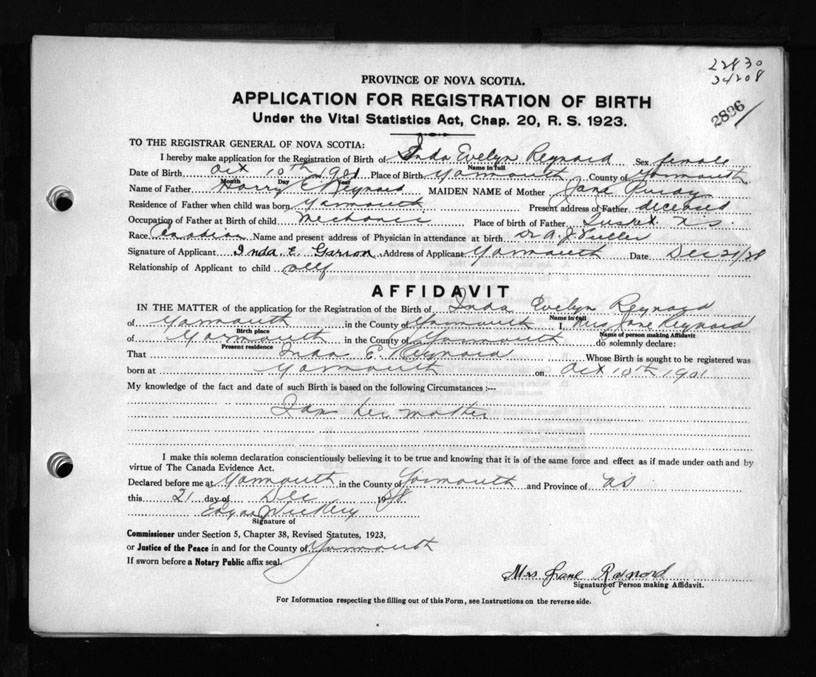 22830
34208
2836
PROVINCE OF NOVA SCOTIA.
APPLICATION FOR REGISTRATION OF BIRTH
Under the Vital Statistics Act, Chap. 20, R. S. 1923.
TO THE REGISTRAR GENERAL OF NOVA SCOTIA:
I hereby make application for the Registration of Birth of Inda Evelyn Reynard Sex female
Name in full
Date of Birth Oct 10th 1901 Place of Birth Yarmouth County of Yarmouth
Month Day
Name of Father Harry E Reynard MAIDEN NAME of Mother Jane
Residence of Father when child was born Yarmouth Present address of Father deceased
Occupation of Father at Birth of child Mechanic Place of birth of Father Tusket N S.
Race Canadian Name and present address of Physician in attendance at birth Dr A. J. Fuller
Signature of Applicant Inda E. Garron Address of Applicant Yarmouth Date Dec 21/28
Relationship of Applicant to child self
AFFIDAVIT
IN THE MATTER of the application for the Registration of the Birth of Inda Evelyn Reynard
Name in full
of Yarmouth in the County of Yarmouth I, Mrs Jane Reynard
Birth place Name of person making Affidavit
of Yarmouth in the County of Yarmouth do solemnly declare:
Present residence
That Inda E. Reynard Whose Birth is sought to be registered was
born at Yarmouth on Oct 10th 1901
My knowledge of the fact and date of such Birth is based on the following Circumstances :—
I am her mother
I make this solemn declaration conscientiously believing it to be true and knowing that it is of the same force and effect as if made under oath and by
virtue of The Canada Evidence Act.
Declared before me at Yarmouth in the County of Yarmouth and Province of NS
this 21 day of Dec 1928
Signature of
Commissioner under Section 5, Chapter 38, Revised Statutes, 1923,
or Justice of the Peace in and for the County of Yarmouth
If sworn before a Notary Public affix seal.
Mrs Jane Raynard
Signature of Person making Affidavit.
For Information respecting the filling out of this Form, see Instructions on the reverse side.